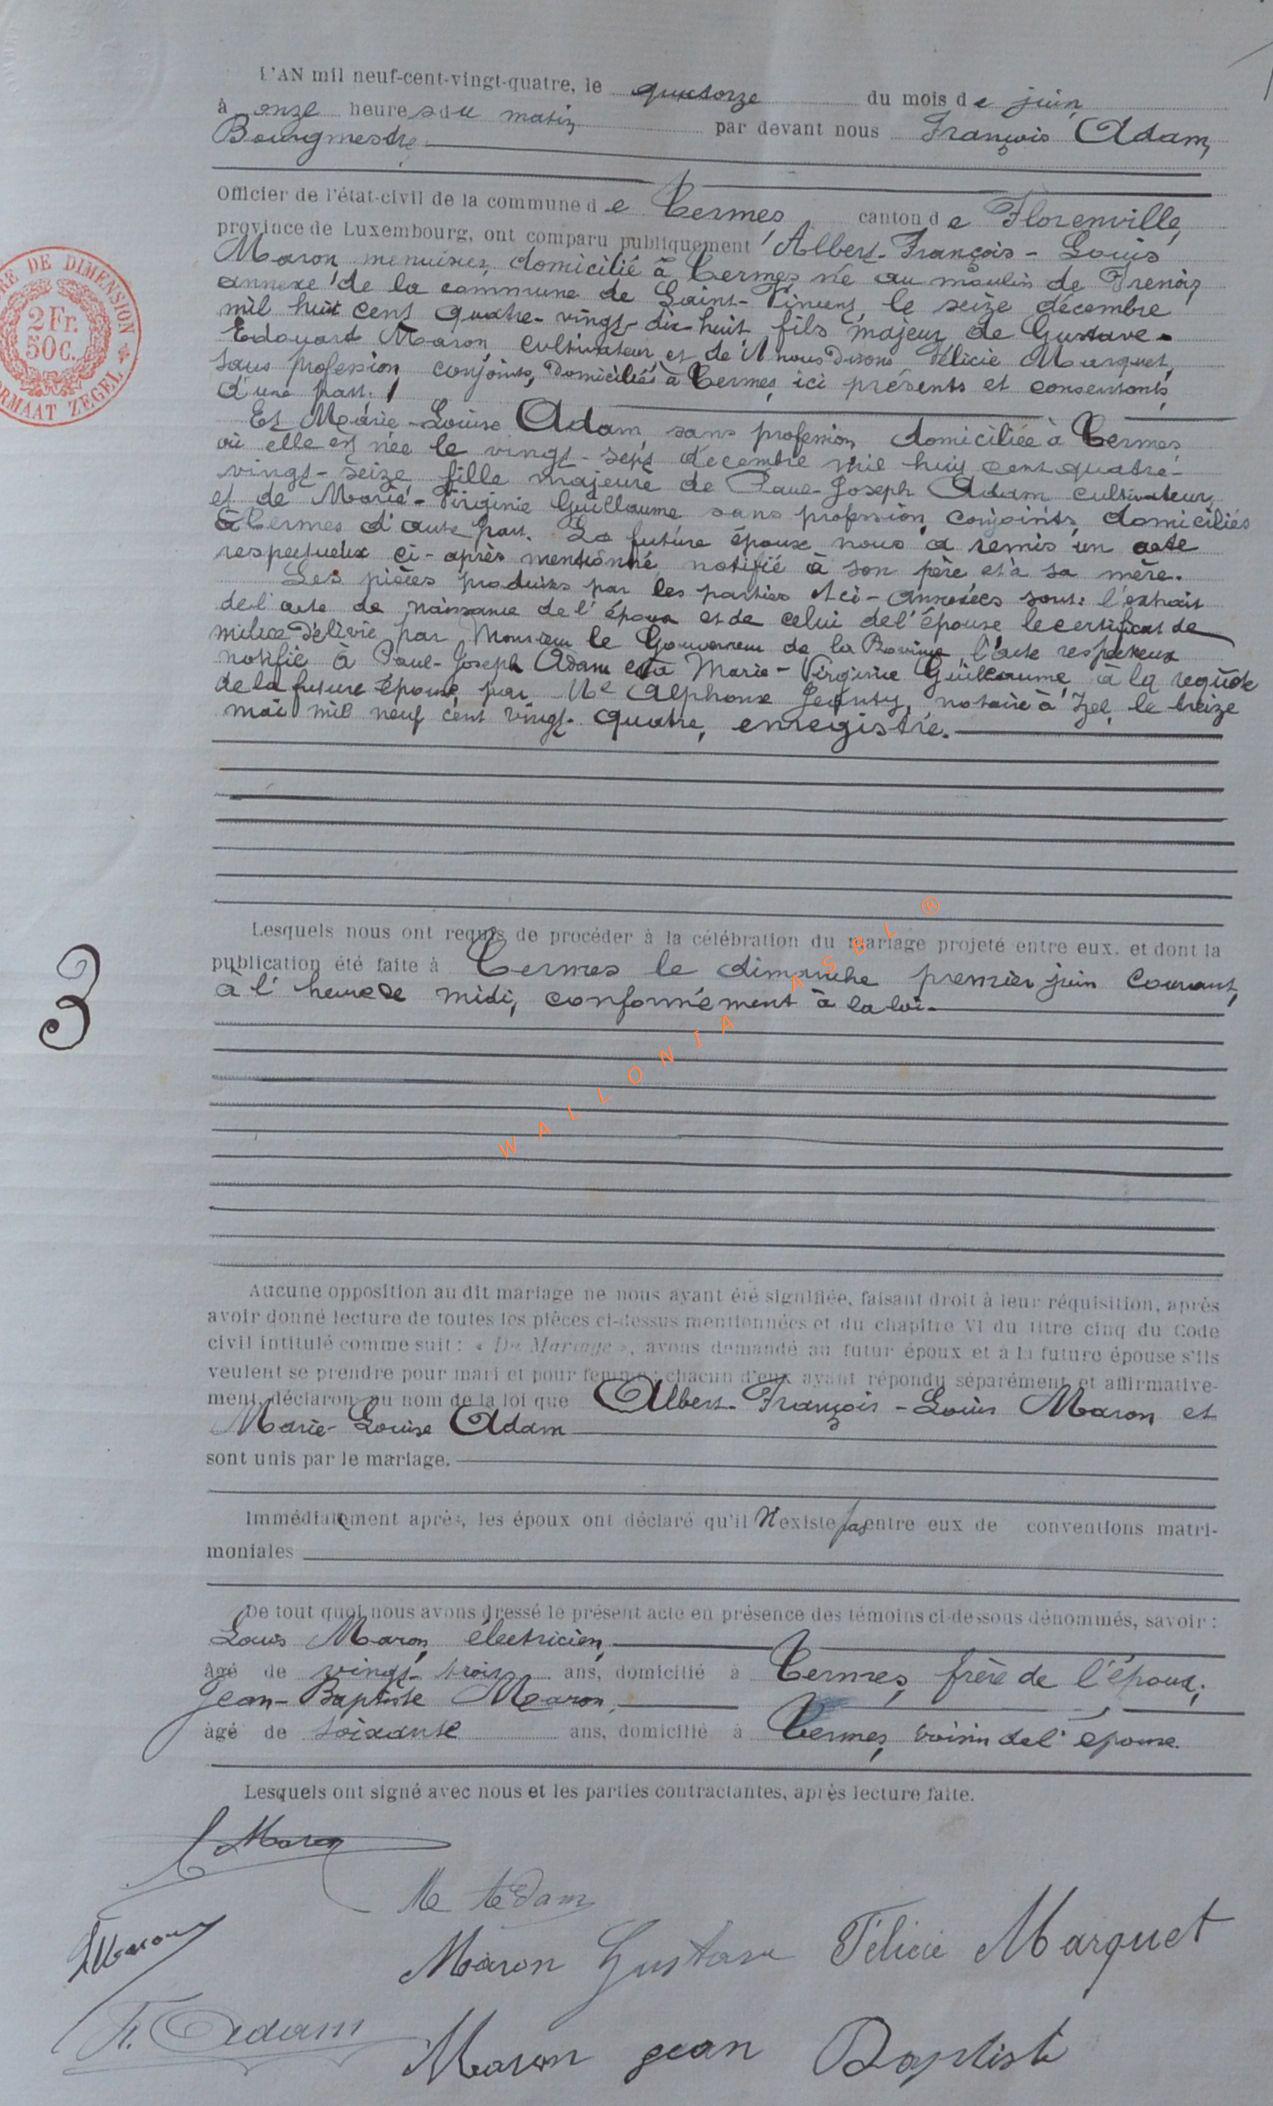 L'AN mil neuf-cent-vingt-quatre, le quatorze du mois de juin
à onze heures du matin par devant nous François Adam,
Bourgmestre
Officier de l'état-civil de la commune de Termes, canton de Florenville,
province de Luxembourg, ont comparu publiquement Albert-François-Louis
Maron menuisier, domicilié à Termes né au moulin de Frenois
annexe de la commune de Saint-Vincent, le seize décembre
mil huit cent quatre-vingt-dix-huit fils majeur de Gustave-
Edouard Maron, cultivateur, et de Félicie Marquet,
sans profession, conjoints, domiciliés à Termes, ici présents et consentants
d'une part.
Et Marie-Louise Adam sans profession, domiciliée à Termes
où elle est née le vingt-sept décembre mil huit cent quatre-
vingt-seize, fille majeure de Paul-Joseph Adam cultivateur,
et de Marie-Virginie Guillaume sans profession, conjoints, domiciliés
à Termes d'autre part. La future épouse nous a remis un acte
respectueux ci-après mentionné, notifié à son père et à sa mère.
Les pièces produites par les parties et ci-annexées sont: l'extrait
de l'acte de naissance de l'époux et de celui de l'épouse le certificat de
milice délivré par Monsieur le Gouverneur de la Province, l'acte respectueux
notifié à Paul-Joseph Adam et à Marie-Virginie Guillaume, à la requête
de la future épouse, par Me Alphonse notaire à Izel, le treize
mai mil neuf cent vingt-quatre, enregistré.
TIMBRE DE DIMENSION
2 Fr.
50 C.
FORMAAT ZEGEL
3
Lesquels nous ont requis de procéder à la célébration du mariage projeté entre eux. et dont la
publication été faite à Termes le dimanche premier juin courant,
à l'heure de midi, conformément à la loi.
WALLONIA ASBL ®
Aucune opposition au dit mariage ne nous ayant été signifiée, faisant droit à leur réquisition, après
avoir donné lecture de toutes les pièces ci-dessus mentionnées et du chapitre VI du titre cinq du Code
civil intitulé comme suit : « Du Mariage », avons demandé au futur époux et à la future épouse s'ils
veulent se prendre pour mari et pour femme ; chacun d'eux ayant répondu séparément et affirmative-
ment, déclarons au nom de la loi que Albert-François-Louis Maron et
Marie-Louise Adam
sont unis par le mariage.
Immédiatement après, les époux ont déclaré qu'il n'existe pas entre eux de conventions matri-
moniales
De tout quoi nous avons dressé le présent acte en présence des témoins ci-dessous dénommés, savoir :
Louis Maron, électricien,
âgé de vingt-trois ans, domicilié à Termes, frère de l'époux;
Jean-Baptiste Maron,
âgé de soixante ans, domicilié à Termes, voisin de l'épouse.
Lesquels ont signé avec nous et les parties contractantes, après lecture faite.
Maron
Adam
Maron
Maron Gustave Félicie Marquet
F. Adam
Maron jean Baptiste